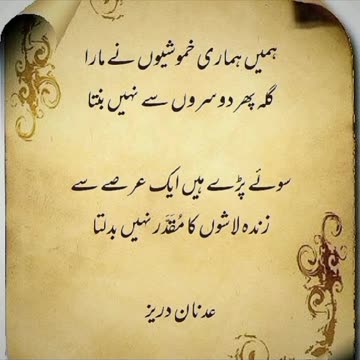 ہمیں ہماری خموشیوں نے مارا
گلہ پھر دوسروں سے نہیں بنتا
سوئے پڑے ہیں ایک عرصے سے
زندہ لاشوں کا مُقدّر نہیں بدلتا
عدنان دریز